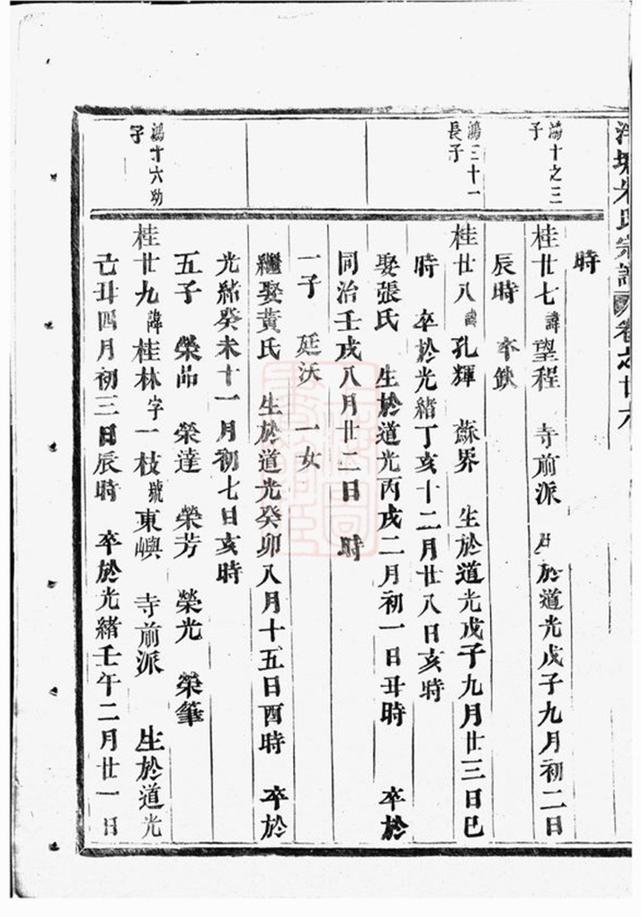 朱氏宗譜 卷之廿六
時
鴻十之三子
桂廿七諱望程 寺前派 生於道光戊子九月初二日
辰時 卒缺
鴻三十一長子
桂廿八諱孔輝 蘇界 生於道光戊子九月廿三日巳
時 卒於光緒丁亥十二月廿八日亥時
娶張氏 生於道光丙戌二月初一日丑時 卒於
同治壬戌八月廿二日 時
一子 廷沃 一女
繼娶黃氏 生於道光癸卯八月十五日酉時 卒於
光緒癸未十一月初七日亥時
五子 榮芇 榮達 榮芳 榮光 榮筆
鴻十六幼子
桂廿九諱桂林字一枝號東嶼 寺前派 生於道光
己丑四月初三日辰時 卒於光緒壬午二月廿一日